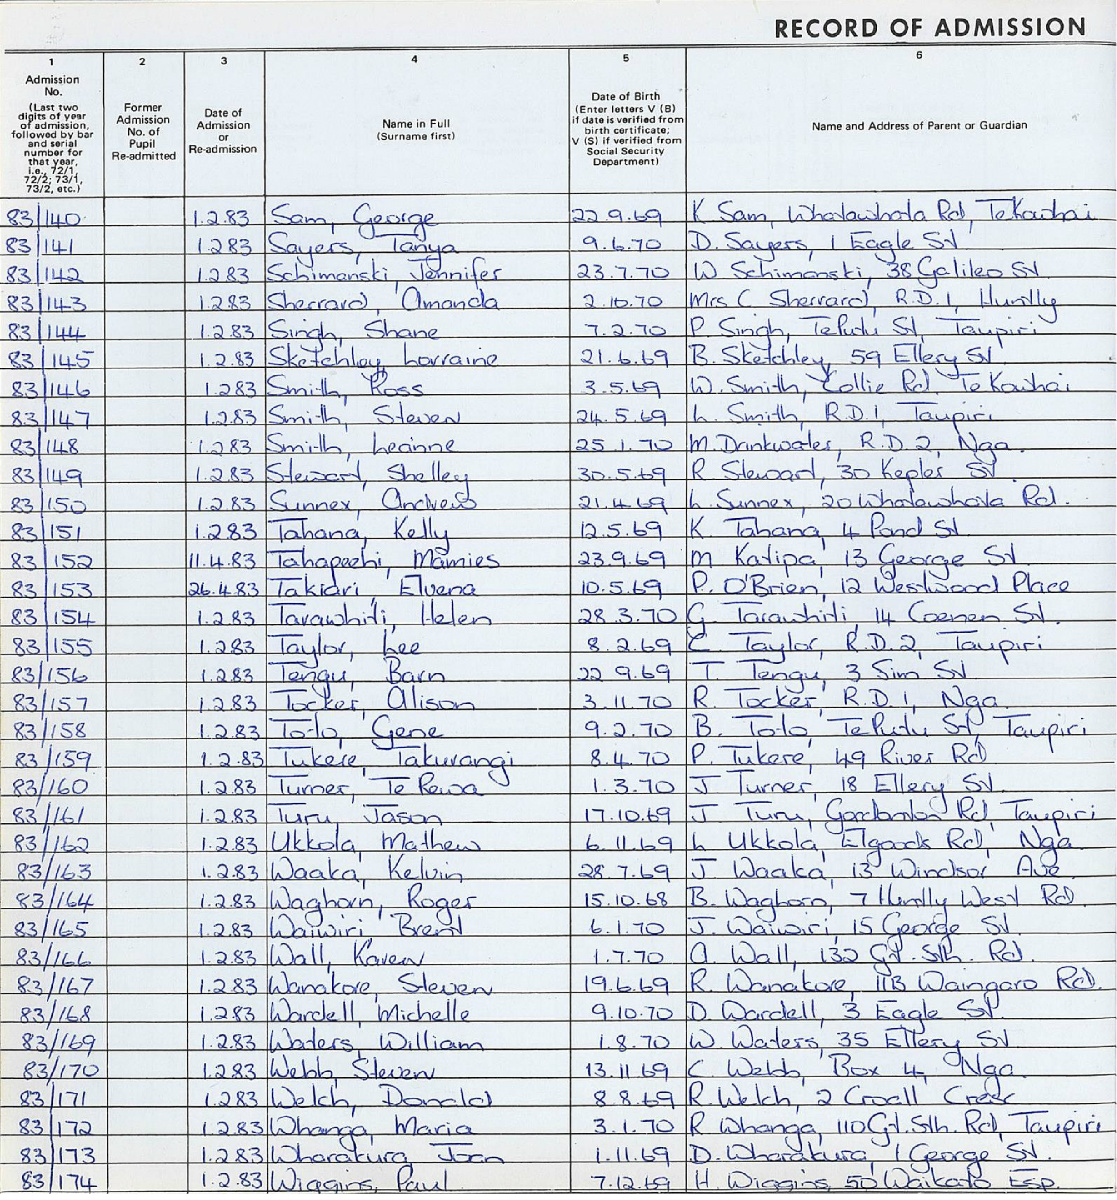 RECORD OF ADMISSION
1 2 3 4 5 6
Admission No. (Last two digits of year of admission, followed by bar and serial number for that year, i.e., 72/1, 72/2; 73/1, 73/2, etc.)
Former Admission No. of Pupil Re-admitted
Date of Admission or Re-admission
Name in Full (Surname first)
Date of Birth (Enter letters V (B) if date is verified from birth certificate; V (S) if verified from Social Security Department)
Name and Address of Parent or Guardian
83/140 1.2.83 Sam, George 22.9.69 K Sam, Whatawhata Rd, Te Kowhai
83/141 1.2.83 Sayers, Tanya 9.6.70 D. Sayers, 1 Eagle St
83/142 1.2.83 Schimanski, Jennifer 23.7.70 W Schimanski, 38 Galileo St.
83/143 1.2.83 Sherrard, Amanda 2.10.70 Mrs C Sherrard, R.D.1, Huntly
83/144 1.2.83 Singh, Shane 7.2.70 P Singh, Te Putu St, Taupiri
83/145 1.2.83 Sketchley, Lorraine 21.6.69 B. Sketchley, 59 Ellery St
83/146 1.2.83 Smith, Ross 3.5.69 W. Smith, Collie Rd Te Kowhai
83/147 1.2.83 Smith, Steven 24.5.69 L. Smith, R.D.1, Taupiri
83/148 1.2.83 Smith, Leanne 25.1.70 M. Drinkwater, R.D.2, Nga.
83/149 1.2.83 Steward, Shelley 30.5.69 R Steward, 30 Kepler St
83/150 1.2.83 Sunnex, Andrew 21.4.69 L. Sunnex, 20 Whatawhata Rd.
83/151 1.2.83 Tahana, Kelly 12.5.69 K Tahana, 4 Pond St
83/152 11.4.83 Tahapeehi, Mamies 23.9.69 M Katipa, 13 George St
83/153 26.4.83 Takiari, Elvena 10.5.69 P. O'Brien, 12 Westwood Place
83/154 1.2.83 Tarawhiti, Helen 28.3.70 G. Tarawhiti, 14 Coenen St.
83/155 1.2.83 Taylor, Lee 8.2.69 C. Taylor, R.D.2, Taupiri
83/156 1.2.83 Tengu, Barn 22.9.69 T. Tengu, 3 Sim St
83/157 1.2.83 Tocker, Alison 3.11.70 R. Tocker, R.D.1, Nga.
83/158 1.2.83 Toto, Gene 9.2.70 B. Toto, Te Putu St, Taupiri
83/159 1.2.83 Tukere, Takurangi 8.4.70 P. Tukere, 49 River Rd
83/160 1.2.83 Turner, Te Rewa 1.3.70 J Turner, 18 Ellery St.
83/161 1.2.83 Turu, Jason 17.10.69 J Turu, Gordonton Rd, Taupiri
83/162 1.2.83 Ukkola, Mathew 6.11.69 L Ukkola, Elgoods Rd, Nga.
83/163 1.2.83 Waaka, Kelvin 28.7.69 J. Waaka, 13 Windsor Ave
83/164 1.2.83 Waghorn, Roger 15.10.68 B. Waghorn, 7 Huntly West Rd.
83/165 1.2.83 Waiwiri Brent 6.1.70 J. Waiwiri, 15 George St.
83/166 1.2.83 Wall, Karen 1.7.70 A. Wall, 132 Gt. Sth. Rd.
83/167 1.2.83 Wanakore, Steven 19.6.69 R. Wanakore, 11B Waingaro Rd.
83/168 1.2.83 Wardell, Michelle 9.10.70 D. Wardell, 3 Eagle St.
83/169 1.2.83 Waters, William 1.8.70 W. Waters, 35 Ellery St
83/170 1.2.83 Webb, Steven 13.11.69 C. Webb, Box 4, Nga.
83/171 1.2.83 Welch, Donald 8.8.69 R. Welch, 2 Croall Cres
83/172 1.2.83 Whanga, Maria 3.1.70 R Whanga, 110 Gt. Sth. Rd, Taupiri
83/173 1.2.83 Wharakura, Joan 1.11.69 D. Wharakura, 1 George St.
83/174 1.2.83 Wiggins, Paul 7.12.69 H. Wiggins, 50 Waikato Esp.